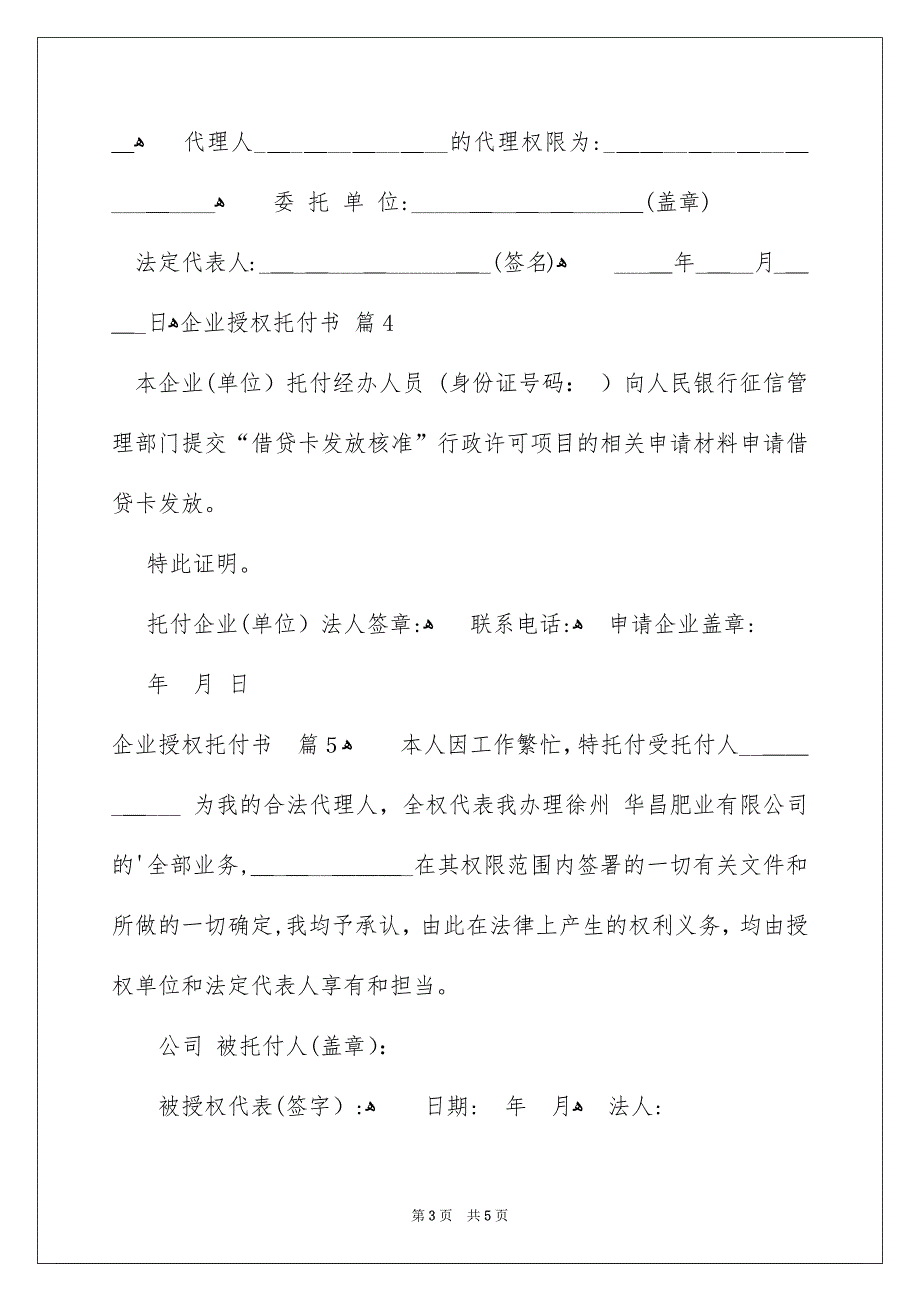 __ﻫ 代理人________________的代理权限为:_________________
_________ﻫ 委 托 单 位:____________________(盖章)
法定代表人:____________________(签名)ﻫ _____年_____月___
___日ﻫ企业授权托付书 篇4
本企业(单位）托付经办人员 (身份证号码： ）向人民银行征信管
理部门提交“借贷卡发放核准”行政许可项目的相关申请材料申请借
贷卡发放。
特此证明。
托付企业(单位）法人签章:ﻫ 联系电话:ﻫ 申请企业盖章:
年 月 日
企业授权托付书 篇5ﻫ 本人因工作繁忙,特托付受托付人______
______ 为我的合法代理人，全权代表我办理徐州 华昌肥业有限公司
的'全部业务,______________在其权限范围内签署的一切有关文件和
所做的一切确定,我均予承认，由此在法律上产生的权利义务，均由授
权单位和法定代表人享有和担当。
公司 被托付人(盖章）：
被授权代表(签字）:ﻫ 日期: 年 月ﻫ 法人:
第3页 共5页